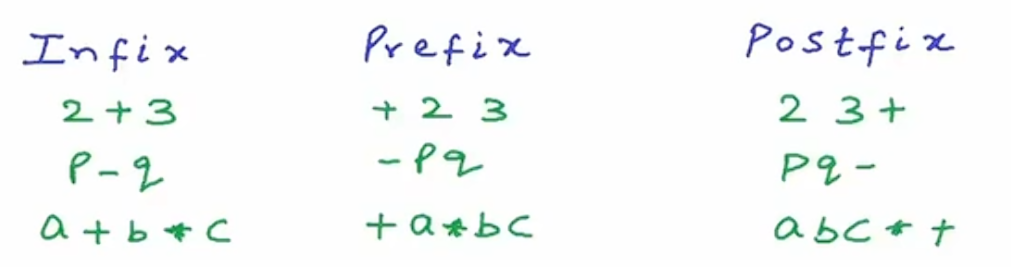 Infix Prefix Postfix
2 + 3 + 2 3 2 3 +
p - q - p q p q -
a + b * c + a * b c a b c * +